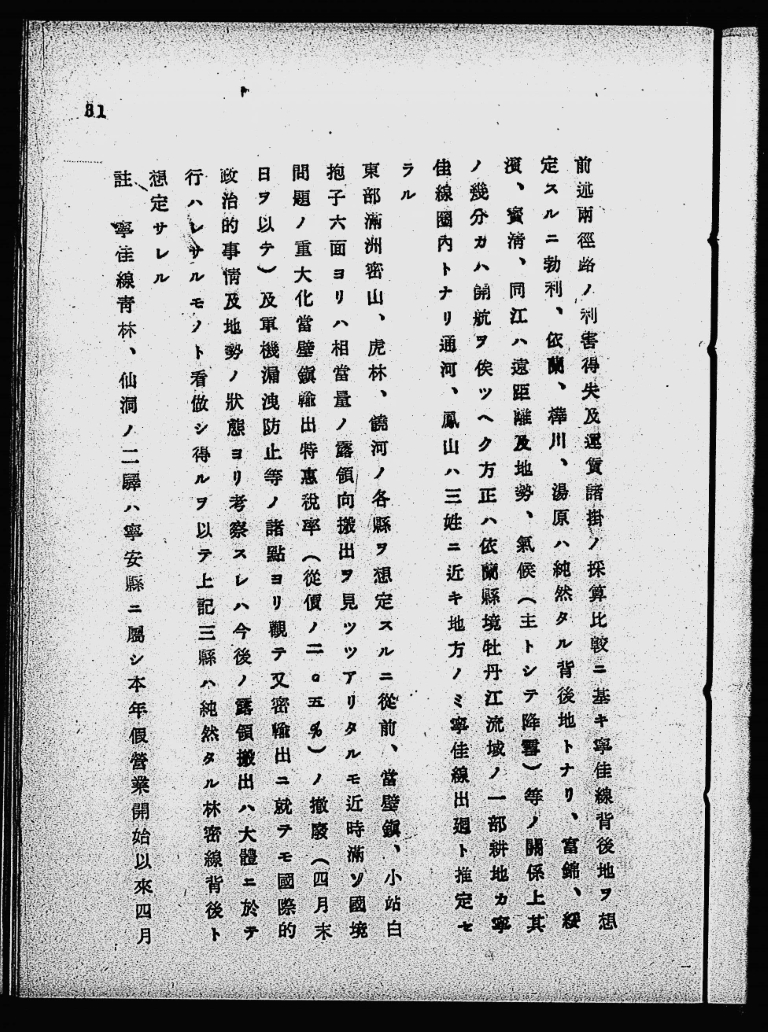 前述兩徑路ノ利害得失及運賃諸掛ノ採算比較ニ基キ寧佳線背後地ヲ想
定スルニ勃利、依蘭、樺川、湯原ハ純然タル背後地トナリ、富錦、綏
濱、寶淸、同江ハ遠距離及地勢、氣候(主トシテ降雪)等ノ關係上其
ノ幾分カハ開航ヲ俟ツヘク方正ハ依蘭縣境牡丹江流域ノ一部耕地カ寧
佳線圈內トナリ通河、鳳山ハ三姓ニ近キ地方ノミ寧佳線出廻ト推定セ
ラル
東部滿洲密山、虎林、饒河ノ各縣ヲ想定スルニ從前、當壁鎭、小站白
抱子六面ヨリハ相當量ノ露領向搬出ヲ見ツツアリタルモ近時滿ソ國境
問題ノ重大化當壁鎭輸出特惠稅率(從價ノ二。五%)ノ撤廢(四月末
日ヲ以テ)及軍機漏洩防止等ノ諸點ヨリ觀テ又密輸出ニ就テモ國際的
政治的事情及地勢ノ狀態ヨリ考察スレハ今後ノ露領搬出ハ大體ニ於テ
行ハレサルモノト看做シ得ルヲ以テ上記三縣ハ純然タル林密線背後ト
想定サレル
註 寧佳線靑林、仙洞ノ二驛ハ寧安縣ニ屬シ本年假營業開始以來四月
31